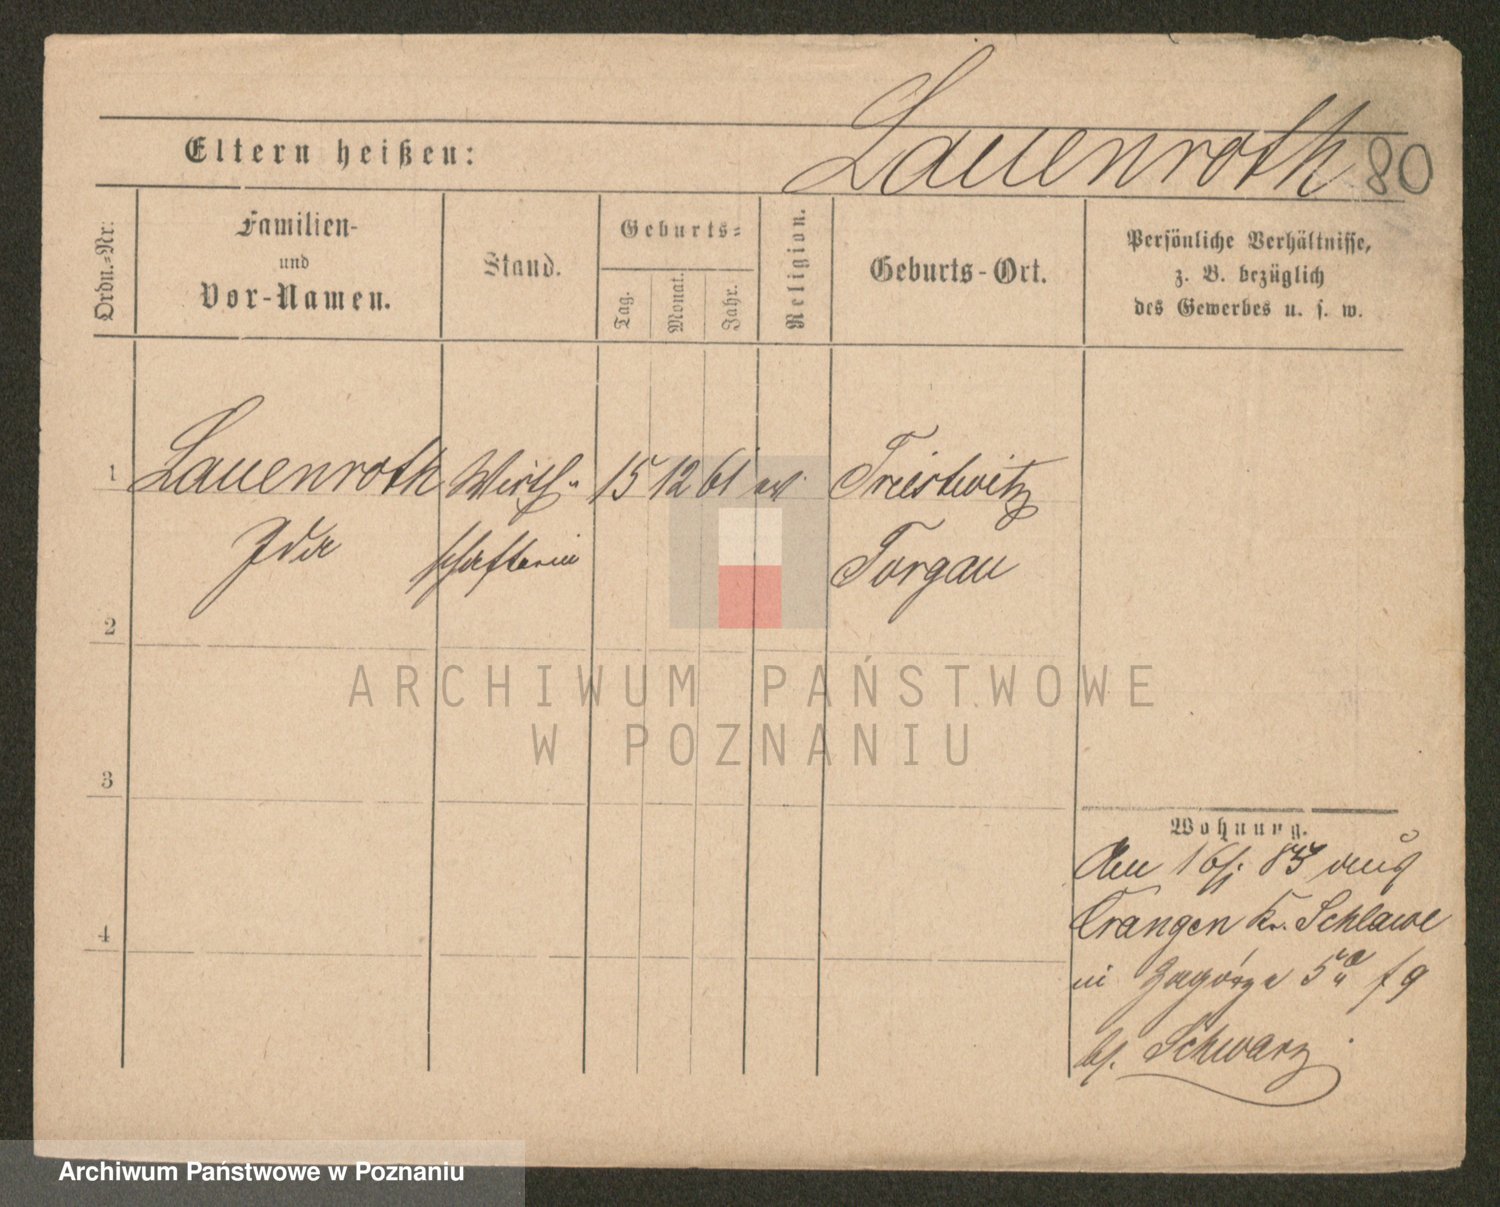 Lauenroth 80
Eltern heißen:
Ordn.-Nr:
Familien-
und
Vor-Namen.
Stand.
Geburts-
Tag.
Monat.
Jahr.
Religion.
Geburts-Ort.
Persönliche Verhältnisse,
z. B. bezüglich
des Gewerbes u. s. w.
1 Lauenroth Wirth- 15 12 61 ev. Triestwitz
Ida schafterin Torgau
2
ARCHIWUM PAŃSTWOWE
W POZNANIU
3
Wohnung.
Am 16/ 85 aus
4
Crangen Kr. Schlawe
in Zagórze 5a
bei Schwarz
Archiwum Państwowe w Poznaniu